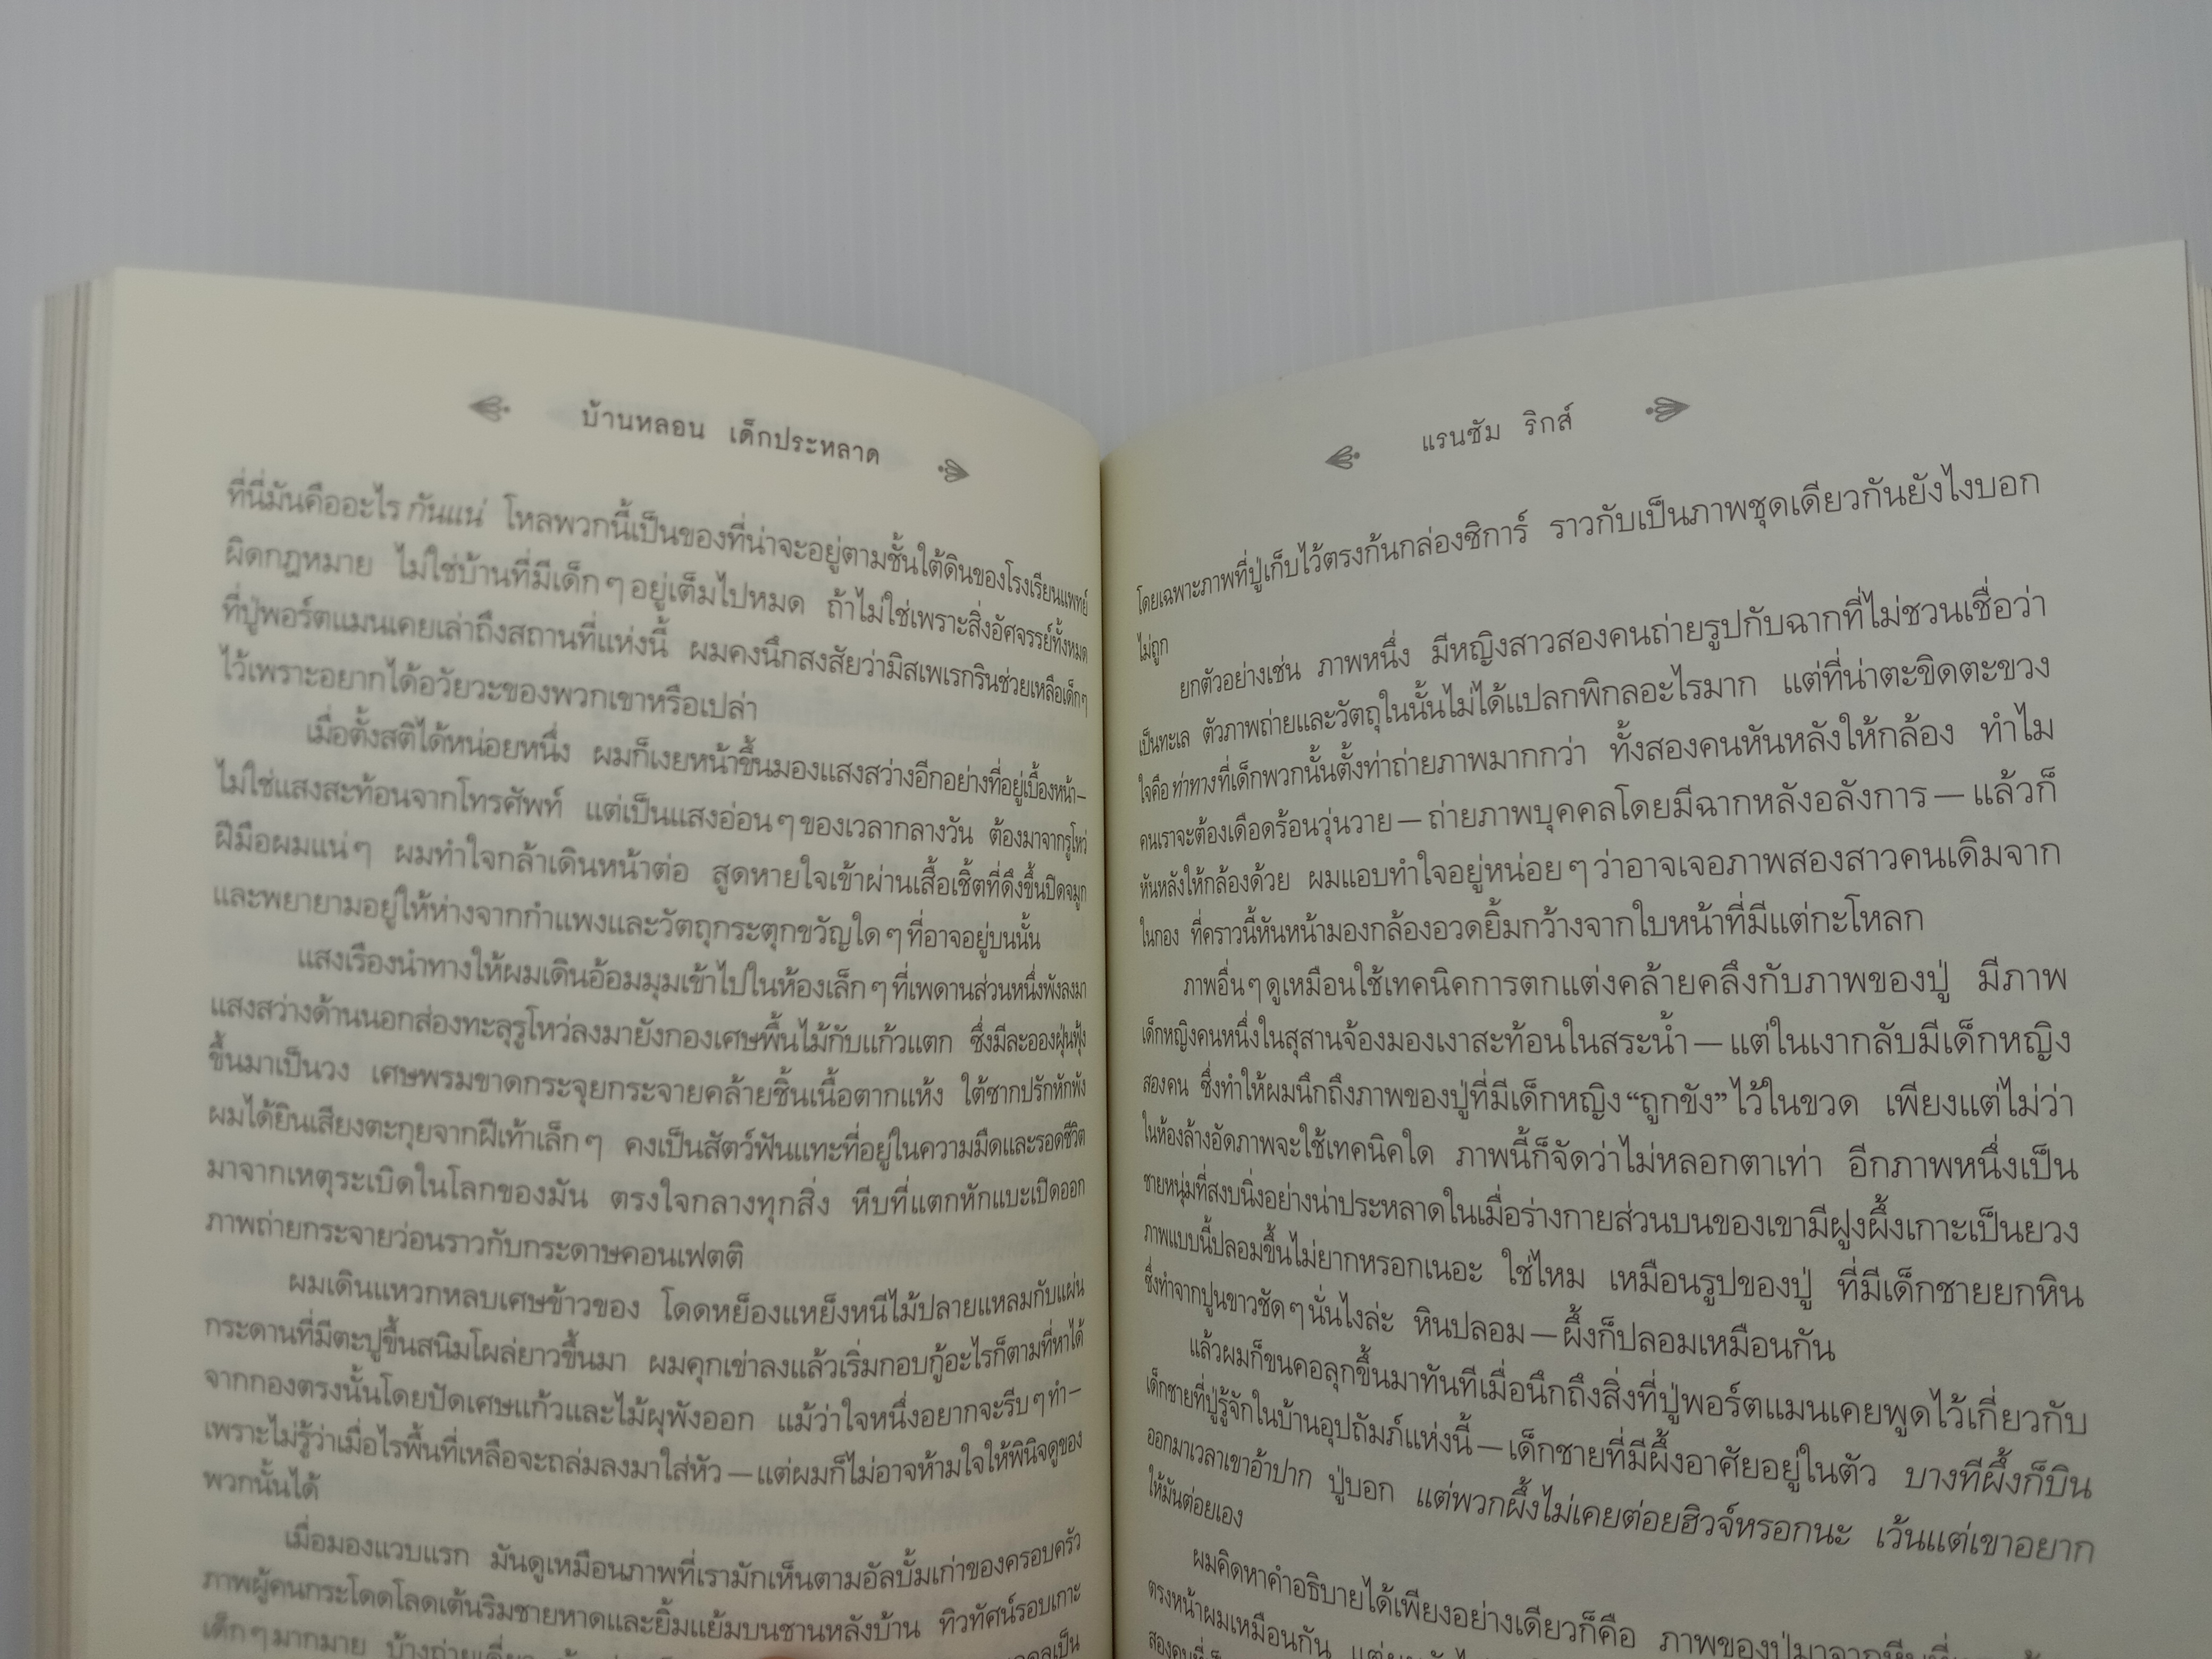 บ้านหลอน เด็กประหลาด
ที่นี่มันคืออะไร กันแน่ โหลพวกนี้เป็นของที่น่าจะอยู่ตามชั้นใต้ดินของโรงเรียนแพทย์
ผิดกฎหมาย ไม่ใช่บ้านที่มีเด็กๆ อยู่เต็มไปหมด ถ้าไม่ใช่เพราะสิ่งอัศจรรย์ทั้งหมด
ที่ปู่พอร์ตแมนเคยเล่าถึงสถานที่แห่งนี้ ผมคงนึกสงสัยว่ามิสเพเรกรินช่วยเหลือเด็กๆ
ไว้เพราะอยากได้อวัยวะของพวกเขาหรือเปล่า
เมื่อตั้งสติได้หน่อยหนึ่ง ผมก็เงยหน้าขึ้นมองแสงสว่างอีกอย่างที่อยู่เบื้องหน้า—
ไม่ใช่แสงสะท้อนจากโทรศัพท์ แต่เป็นแสงอ่อนๆ ของเวลากลางวัน ต้องมาจากรูโหว่
ฝีมือผมแน่ๆ ผมทำใจกล้าเดินหน้าต่อ สูดหายใจเข้าผ่านเสื้อเชิ้ตที่ดึงขึ้นปิดจมูก
และพยายามอยู่ให้ห่างจากกำแพงและวัตถุกระตุกขวัญใดๆ ที่อาจอยู่บนนั้น
แสงเรืองนำทางให้ผมเดินอ้อมมุมเข้าไปในห้องเล็กๆ ที่เพดานส่วนหนึ่งพังลงมา
แสงสว่างด้านนอกส่องทะลุรูโหว่ลงมายังกองเศษพื้นไม้กับแก้วแตก ซึ่งมีละอองฝุ่นฟุ้ง
ขึ้นมาเป็นวง เศษพรมขาดกระจุยกระจายคล้ายชิ้นเนื้อตากแห้ง ใต้ซากปรักหักพัง
ผมได้ยินเสียงตะกุยจากฝีเท้าเล็กๆ คงเป็นสัตว์ฟันแทะที่อยู่ในความมืดและรอดชีวิต
มาจากเหตุระเบิดในโลกของมัน ตรงใจกลางทุกสิ่ง หีบที่แตกหักแบะเปิดออก
ภาพถ่ายกระจายว่อนราวกับกระดาษคอนเฟตติ
ผมเดินแหวกหลบเศษข้าวของ โดดหย็องแหย็งหนีไม้ปลายแหลมกับแผ่น
กระดานที่มีตะปูขึ้นสนิมโผล่ยาวขึ้นมา ผมคุกเข่าลงแล้วเริ่มกอบกู้อะไรก็ตามที่หาได้
จากกองตรงนั้นโดยปัดเศษแก้วและไม้ผุพังออก แม้ว่าใจหนึ่งอยากจะรีบๆ ทำ—
เพราะไม่รู้ว่าเมื่อไรพื้นที่เหลือจะถล่มลงมาใส่หัว — แต่ผมก็ไม่อาจห้ามใจให้พินิจดูของ
พวกนั้นได้
เมื่อมองแวบแรก มันดูเหมือนภาพที่เรามักเห็นตามอัลบั้มเก่าของครอบครัว
ภาพผู้คนกระโดดโลดเต้นริมชายหาดและยิ้มแย้มบนชานหลังบ้าน ทิวทัศน์รอบเกาะ
เด็กๆ มากมาย บ้างถ่ายเดี่ยว
แรนซัม ริกส์
โดยเฉพาะภาพที่ปู่เก็บไว้ตรงก้นกล่องซิการ์ ราวกับเป็นภาพชุดเดียวกันยังไงบอก
ไม่ถูก
ยกตัวอย่างเช่น ภาพหนึ่ง มีหญิงสาวสองคนถ่ายรูปกับฉากที่ไม่ชวนเชื่อว่า
เป็นทะเล ตัวภาพถ่ายและวัตถุในนั้นไม่ได้แปลกพิกลอะไรมาก แต่ที่น่าตะขิดตะขวง
ใจคือ ท่าทาง ที่เด็กพวกนั้นตั้งท่าถ่ายภาพมากกว่า ทั้งสองคนหันหลังให้กล้อง ทำไม
คนเราจะต้องเดือดร้อนวุ่นวาย — ถ่ายภาพบุคคลโดยมีฉากหลังอลังการ — แล้วก็
หันหลังให้กล้องด้วย ผมแอบทำใจอยู่หน่อยๆ ว่าอาจเจอภาพสองสาวคนเดิมจาก
ในกอง ที่คราวนี้หันหน้ามองกล้องอวดยิ้มกว้างจากใบหน้าที่มีแต่กะโหลก
ภาพอื่นๆ ดูเหมือนใช้เทคนิคการตกแต่งคล้ายคลึงกับภาพของปู่ มีภาพ
เด็กหญิงคนหนึ่งในสุสานจ้องมองเงาสะท้อนในสระน้ำ — แต่ในเงากลับมีเด็กหญิง
สองคน ซึ่งทำให้ผมนึกถึงภาพของปู่ที่มีเด็กหญิง “ถูกขัง” ไว้ในขวด เพียงแต่ไม่ว่า
ในห้องล้างอัดภาพจะใช้เทคนิคใด ภาพนี้ก็จัดว่าไม่หลอกตาเท่า อีกภาพหนึ่งเป็น
ชายหนุ่มที่สงบนิ่งอย่างน่าประหลาดในเมื่อร่างกายส่วนบนของเขามีฝูงผึ้งเกาะเป็นยวง
ภาพแบบนี้ปลอมขึ้นไม่ยากหรอกเนอะ ใช่ไหม เหมือนรูปของปู่ ที่มีเด็กชายยกหิน
ซึ่งทำจากปูนขาวชัดๆ นั่นไงล่ะ หินปลอม — ผึ้งก็ปลอมเหมือนกัน
แล้วผมก็ขนคอลุกขึ้นมาทันทีเมื่อนึกถึงสิ่งที่ปู่พอร์ตแมนเคยพูดไว้เกี่ยวกับ
เด็กชายที่ปู่รู้จักในบ้านอุปถัมภ์แห่งนี้ — เด็กชายที่มีผึ้งอาศัยอยู่ในตัว บางทีผึ้งก็บิน
ออกมาเวลาเขาอ้าปาก ปู่บอก แต่พวกผึ้งไม่เคยต่อยฮิวจ์หรอกนะ เว้นแต่เขาอยาก
ให้มันต่อยเอง
ผมคิดหาคำอธิบายได้เพียงอย่างเดียวก็คือ ภาพของปู่มาจากหีบที่
ตรงหน้าผมเหมือนกัน